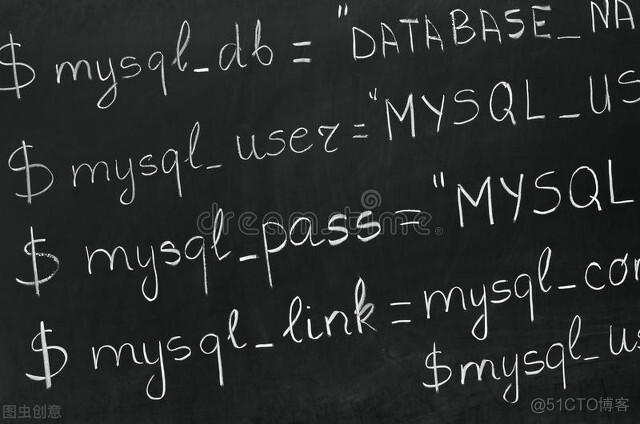 $ mysql_db = "DATABASE_NA
$ mysql_user="MYSQL_US
$ mysql_pass="MYSQL
dreamstime.
$ mysql_link=mysql_con
$mysql_us
图虫创意
@51CTO博客